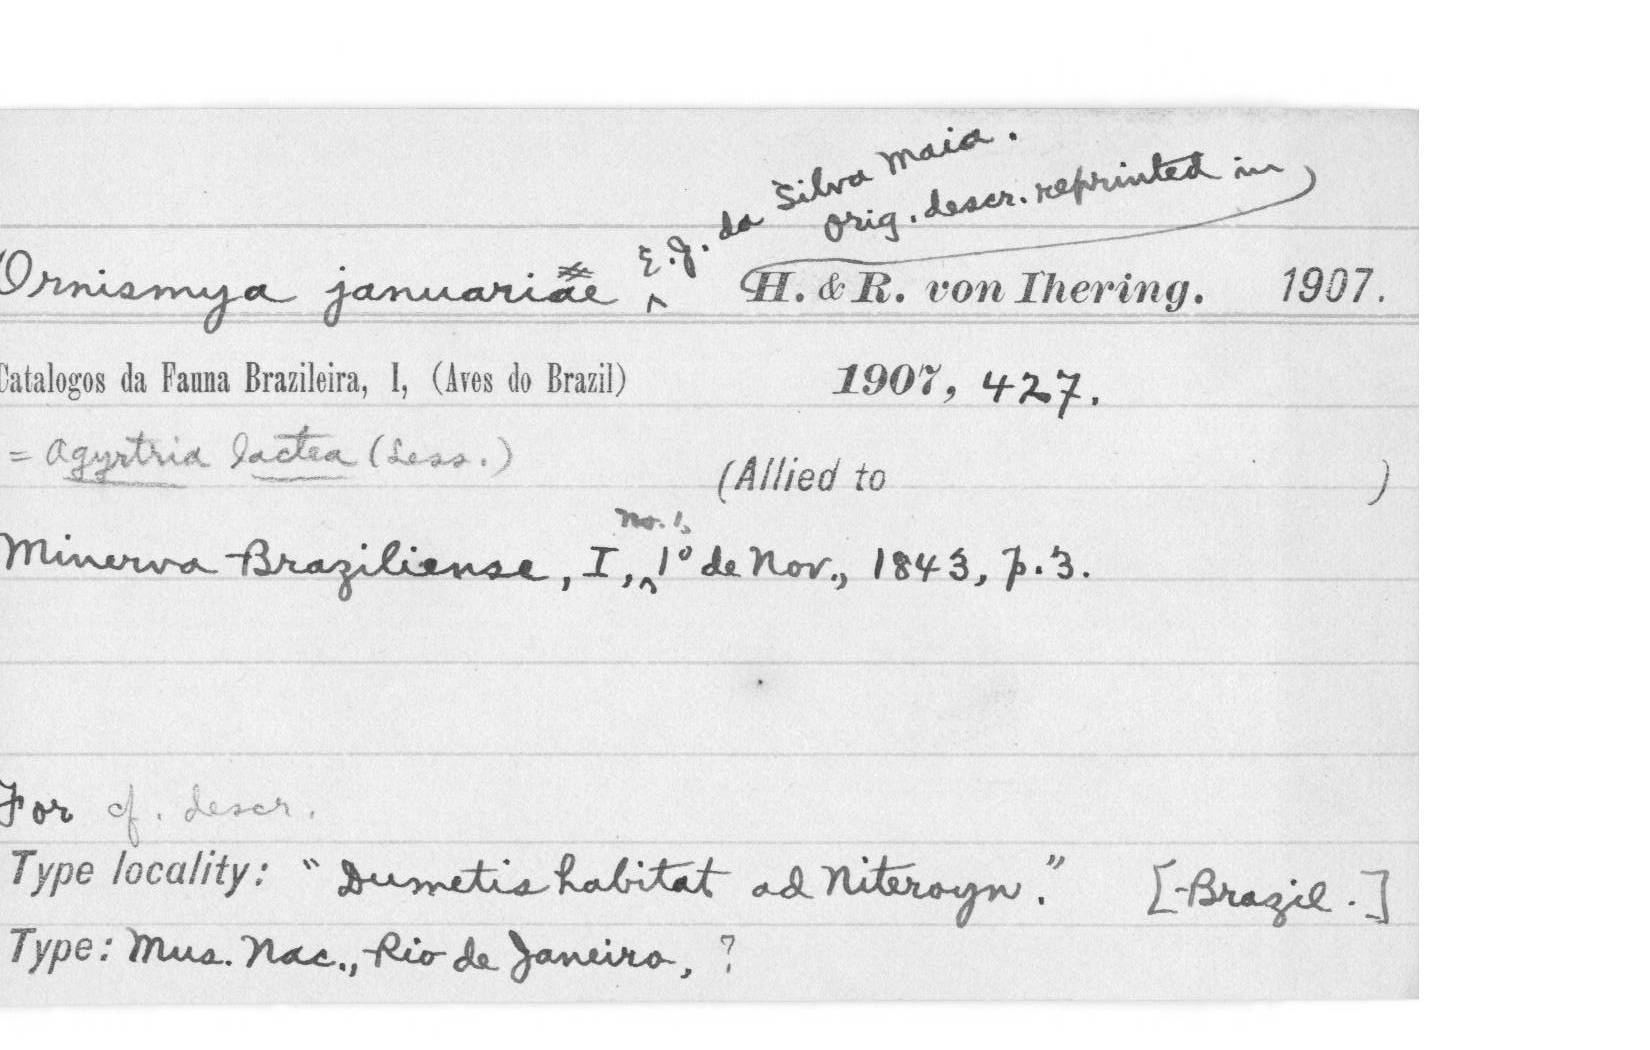 E.J. da Silva Maia.
Orig. descr. reprinted in
Ornismya januariae H. & R. von Ihering. 1907.
Catalogos da Fauna Brazileira, I, (Aves do Brazil) 1907, 427.
= Agyrtria lactea (Less.)
(Allied to )
No. 1,
Minerva Braziliense, I, 1º de Nov., 1843, p. 3.
For cf. descr.
Type locality: "Dumetis habitat ad Niteroyn." [Brazil.]
Type: Mus. Nac., Rio de Janeiro, ?